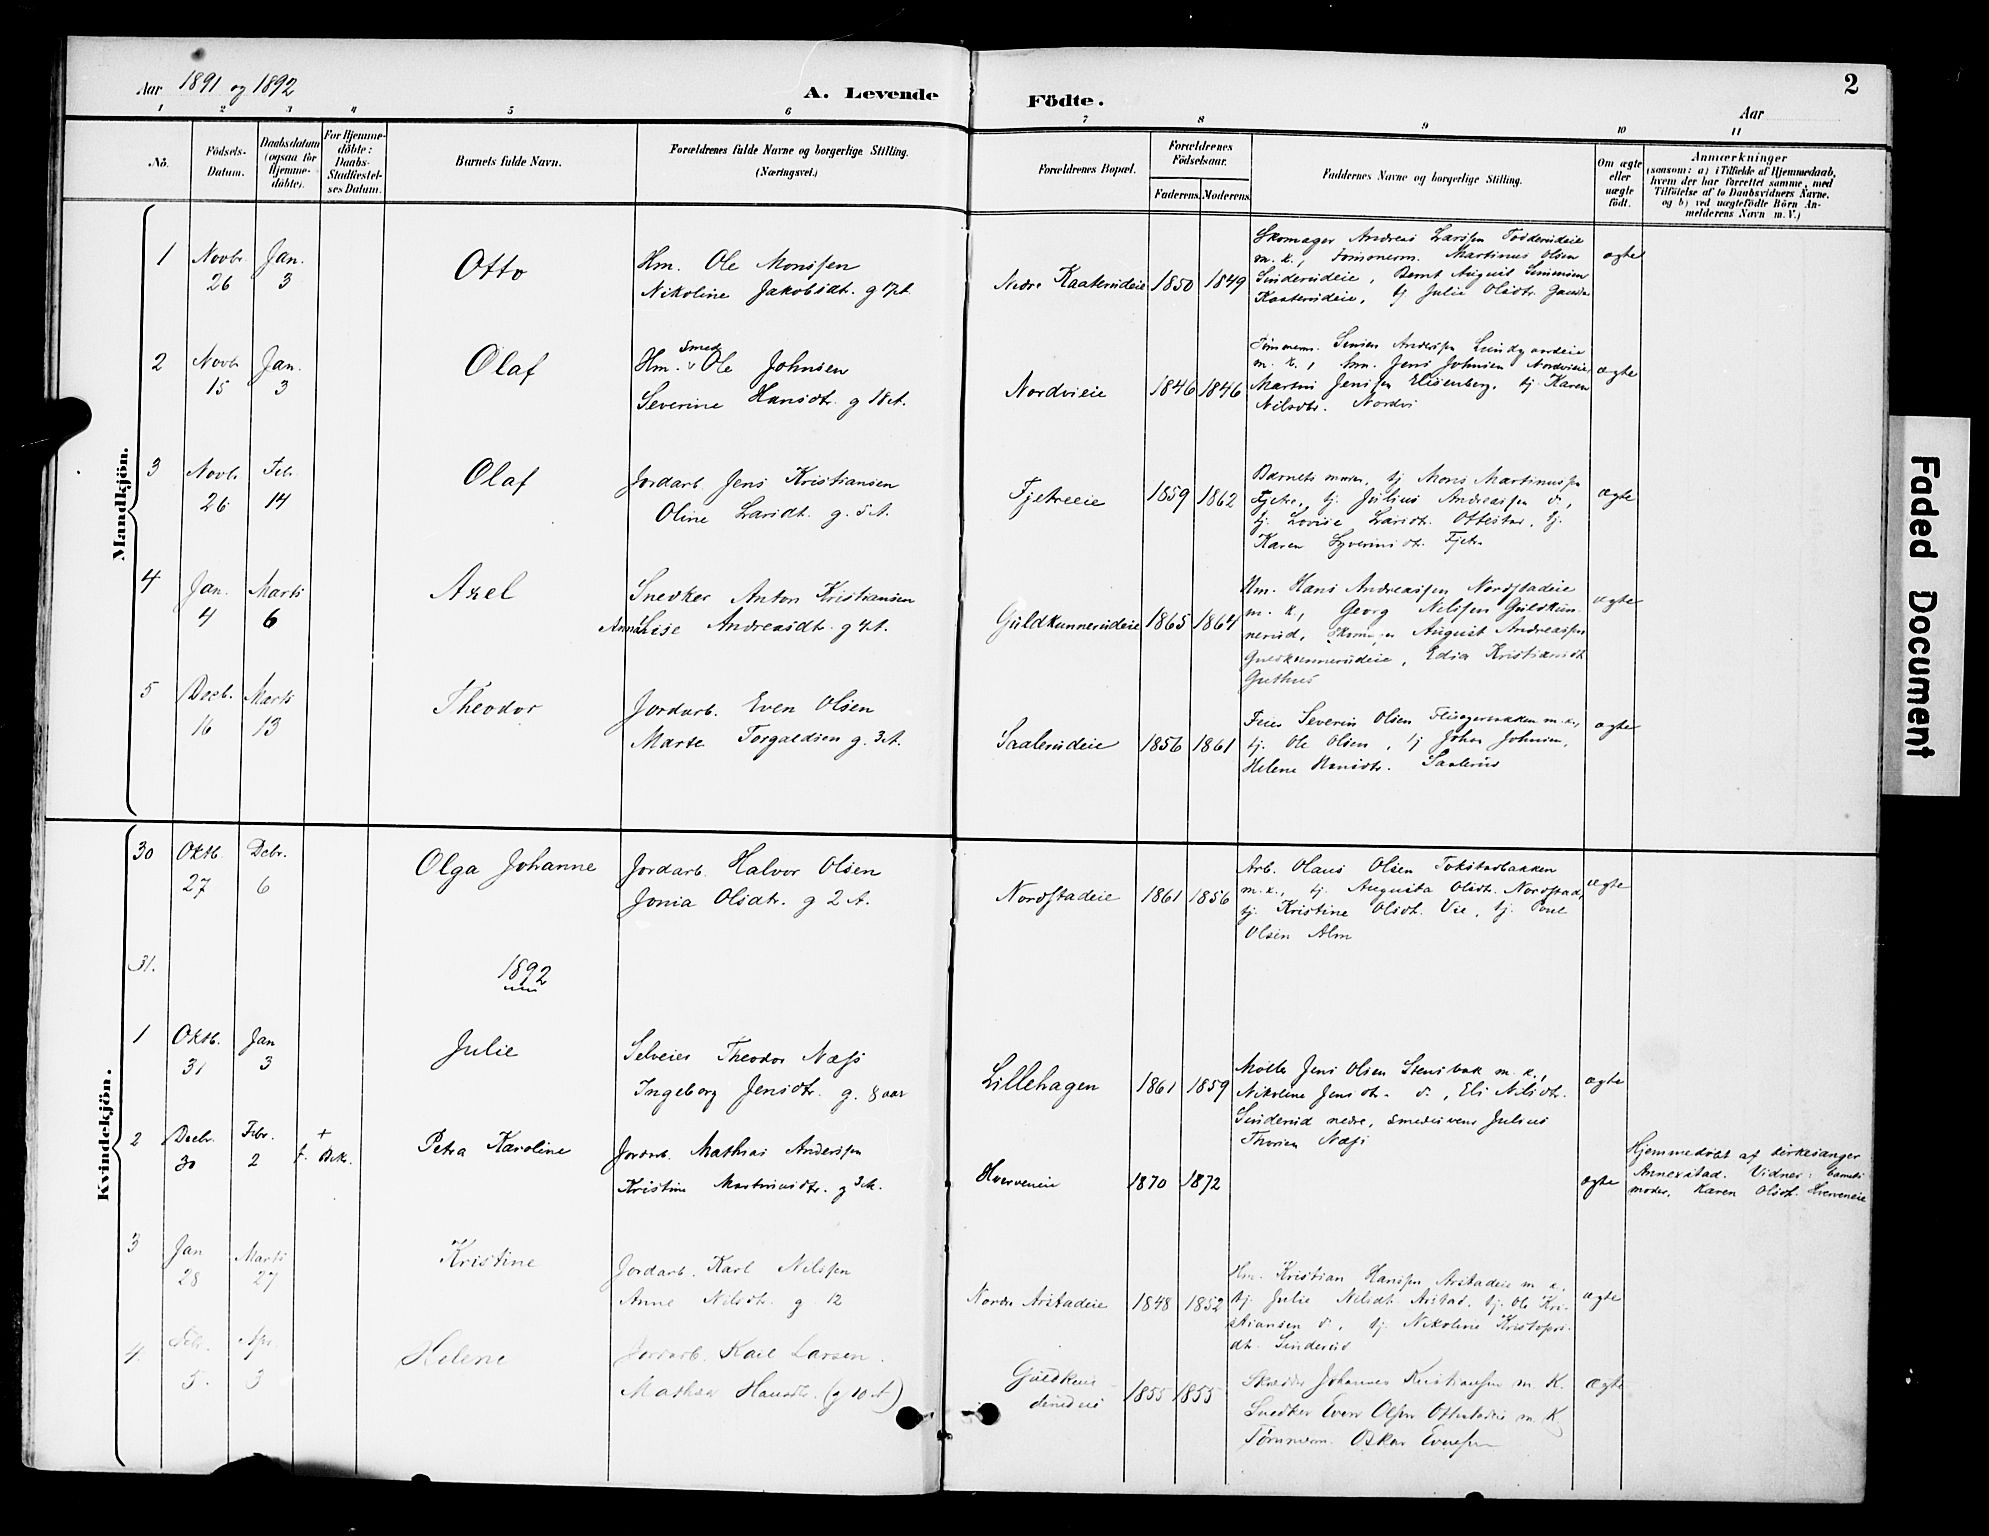 Aar 1891 og 1892
A. Levende Födte.
2
Aar
1 2 3 4 5 6 7 8 9 10 11
No.
Födsels-
Datum.
Daabsdatum
(ogsaa for
Hjemme-
döbte).
For Hjemme-
döbte:
Daabs-
Stadfæstel-
ses Datum.
Barnets fulde Navn.
Forældrenes fulde Navne og borgerlige Stilling.
(Næringsvei.)
Forældrenes Bopæl.
Forældrenes
Födselsaar.
Faderens. Moderens.
Faddernes Navne og borgerlige Stilling.
Om ægte
eller
uægte
födt.
Anmærkninger
(saasom: a) i Tilfælde af Hjemmedaab,
hvem der har forrettet samme, med
Tilföielse af to Daabsvidners Navne,
og b) ved uægtefödte Börn An-
melderens Navn m. V.)
Mandkjön.
1 Novbr 26 Jan. 3
Otto
Hm. Ole Monssen
Nikoline Jakobsdt. g 7 A.
Nedre Kaaterudeie 1850 1849
Skomager Andreas Larssen Fodderudeie
m. k., Tømmerm. Martinus Olsen
Sinderudeie, Bernt August Simensen
Kaaterudeie, tj Julie Olsdtr.
ægte
2 Novbr 15 Jan. 3
Olaf
Hm. v Smed Ole Johnsen
Severine Hansdtr. g 18 A.
Nordvieie 1846 1846
Tømmerm. Simen Anderssen Lundgaardeie
m. k., Hm. Jens Johnsen Nordvieie,
Martin Jenssen Elisenberg, tj. Karen
Nilsdtr. Nordvi
ægte
3 Novbr 26 Febr 14
Olaf
Jordarb. Jens Kristiansen
Oline Larsdt. g. 5 A.
Fjetreeie 1859 1862
Barnets moder, tj Mons Martinussen
Fjetre, tj. Julius Andreassen d.,
tj. Lovise Larsdtr. Ottestad, tj.
Karen Syverinsdtr. Fjetre
ægte
4 Jan. 4 Marts 6
Axel
Snedker Anton Kristiansen
Anne Lise Andreasdtr. g 7 A.
Guldkunnerudeie 1865 1864
Hm. Hans Andreassen Nordstadeie
m. k., Georg Nilssen Guldkun-
nerud, August Andreassen
Guldkunnerudeie, Edia Kristiansdt.
Guthus
ægte
5 Decb. 16 Marts 13
Theodor
Jordarb. Even Olsen
Marte Torgaldsen g. 3 A.
Saalerudeie 1856 1861
Feier Severin Olsen Flisagerbakken m. k.,
tj. Ole Olsen, tj Johan Johnsen,
Helene Hansdtr. Saalerud
ægte
Kvindekjön.
30 Oktb. 27 Debr. 6
Olga Johanne
Jordarb. Halvor Olsen
Jonia Olsdtr. g 2 A.
Nordstadeie 1861 1856
Arb. Olaus Olsen Tokstadbakken
m. k., tj. Augusta Olsdt. Nordstad,
tj. Kristine Olsdt. Vie, tj. Poul
Olsen Alm
ægte
31.
1892
1 Oktb. 31 Jan 3
Julie
Selveier Theodor Næss
Ingeborg Jensdtr. g. 8 aar
Lillehagen 1861 1859
Møller Jens Olsen Stensbak m. k.,
Nikoline Jensdtr. d., Eli Nilsdtr.
Sinderud nedre, smedsvend Julius
Thorsen Næss
ægte
2 Decbr. 30 Febr. 2
Petra Karoline
Jordarb. Mathias Anderssen
Kristine Martinusdtr. g 3 A.
Hverveneie 1870 1872
ægte
Hjemmedøbt af kirkesanger
Annexstad. Vidner: barnets
moder, Karen Olsdt. Hverveneie
3 Jan 28 Marts 27
Kristine
Jordarb. Karl Nilssen
Anne Nilsdtr. g. 12
Nordre Arstadeie 1848 1852
Hm. Kristian Hanssen Arstadeie m k.,
tj. Julie Nilsdt. Arstad, tj. Ole Kri-
stiansen d., tj. Nikoline Kristofers-
dt. Sinderud
ægte
4. Febr. 5. Apr. 3
Helene
Jordarb. Karl Larsen.
Mathea Hansdtr. (g 10 A)
1855 1855
Skrædder Johannes Kristiansen m. K.
Snedker Even Olsen Ottestadeie m. K.
Tømmerm. Oskar Evensen
Ægte
Faded Document